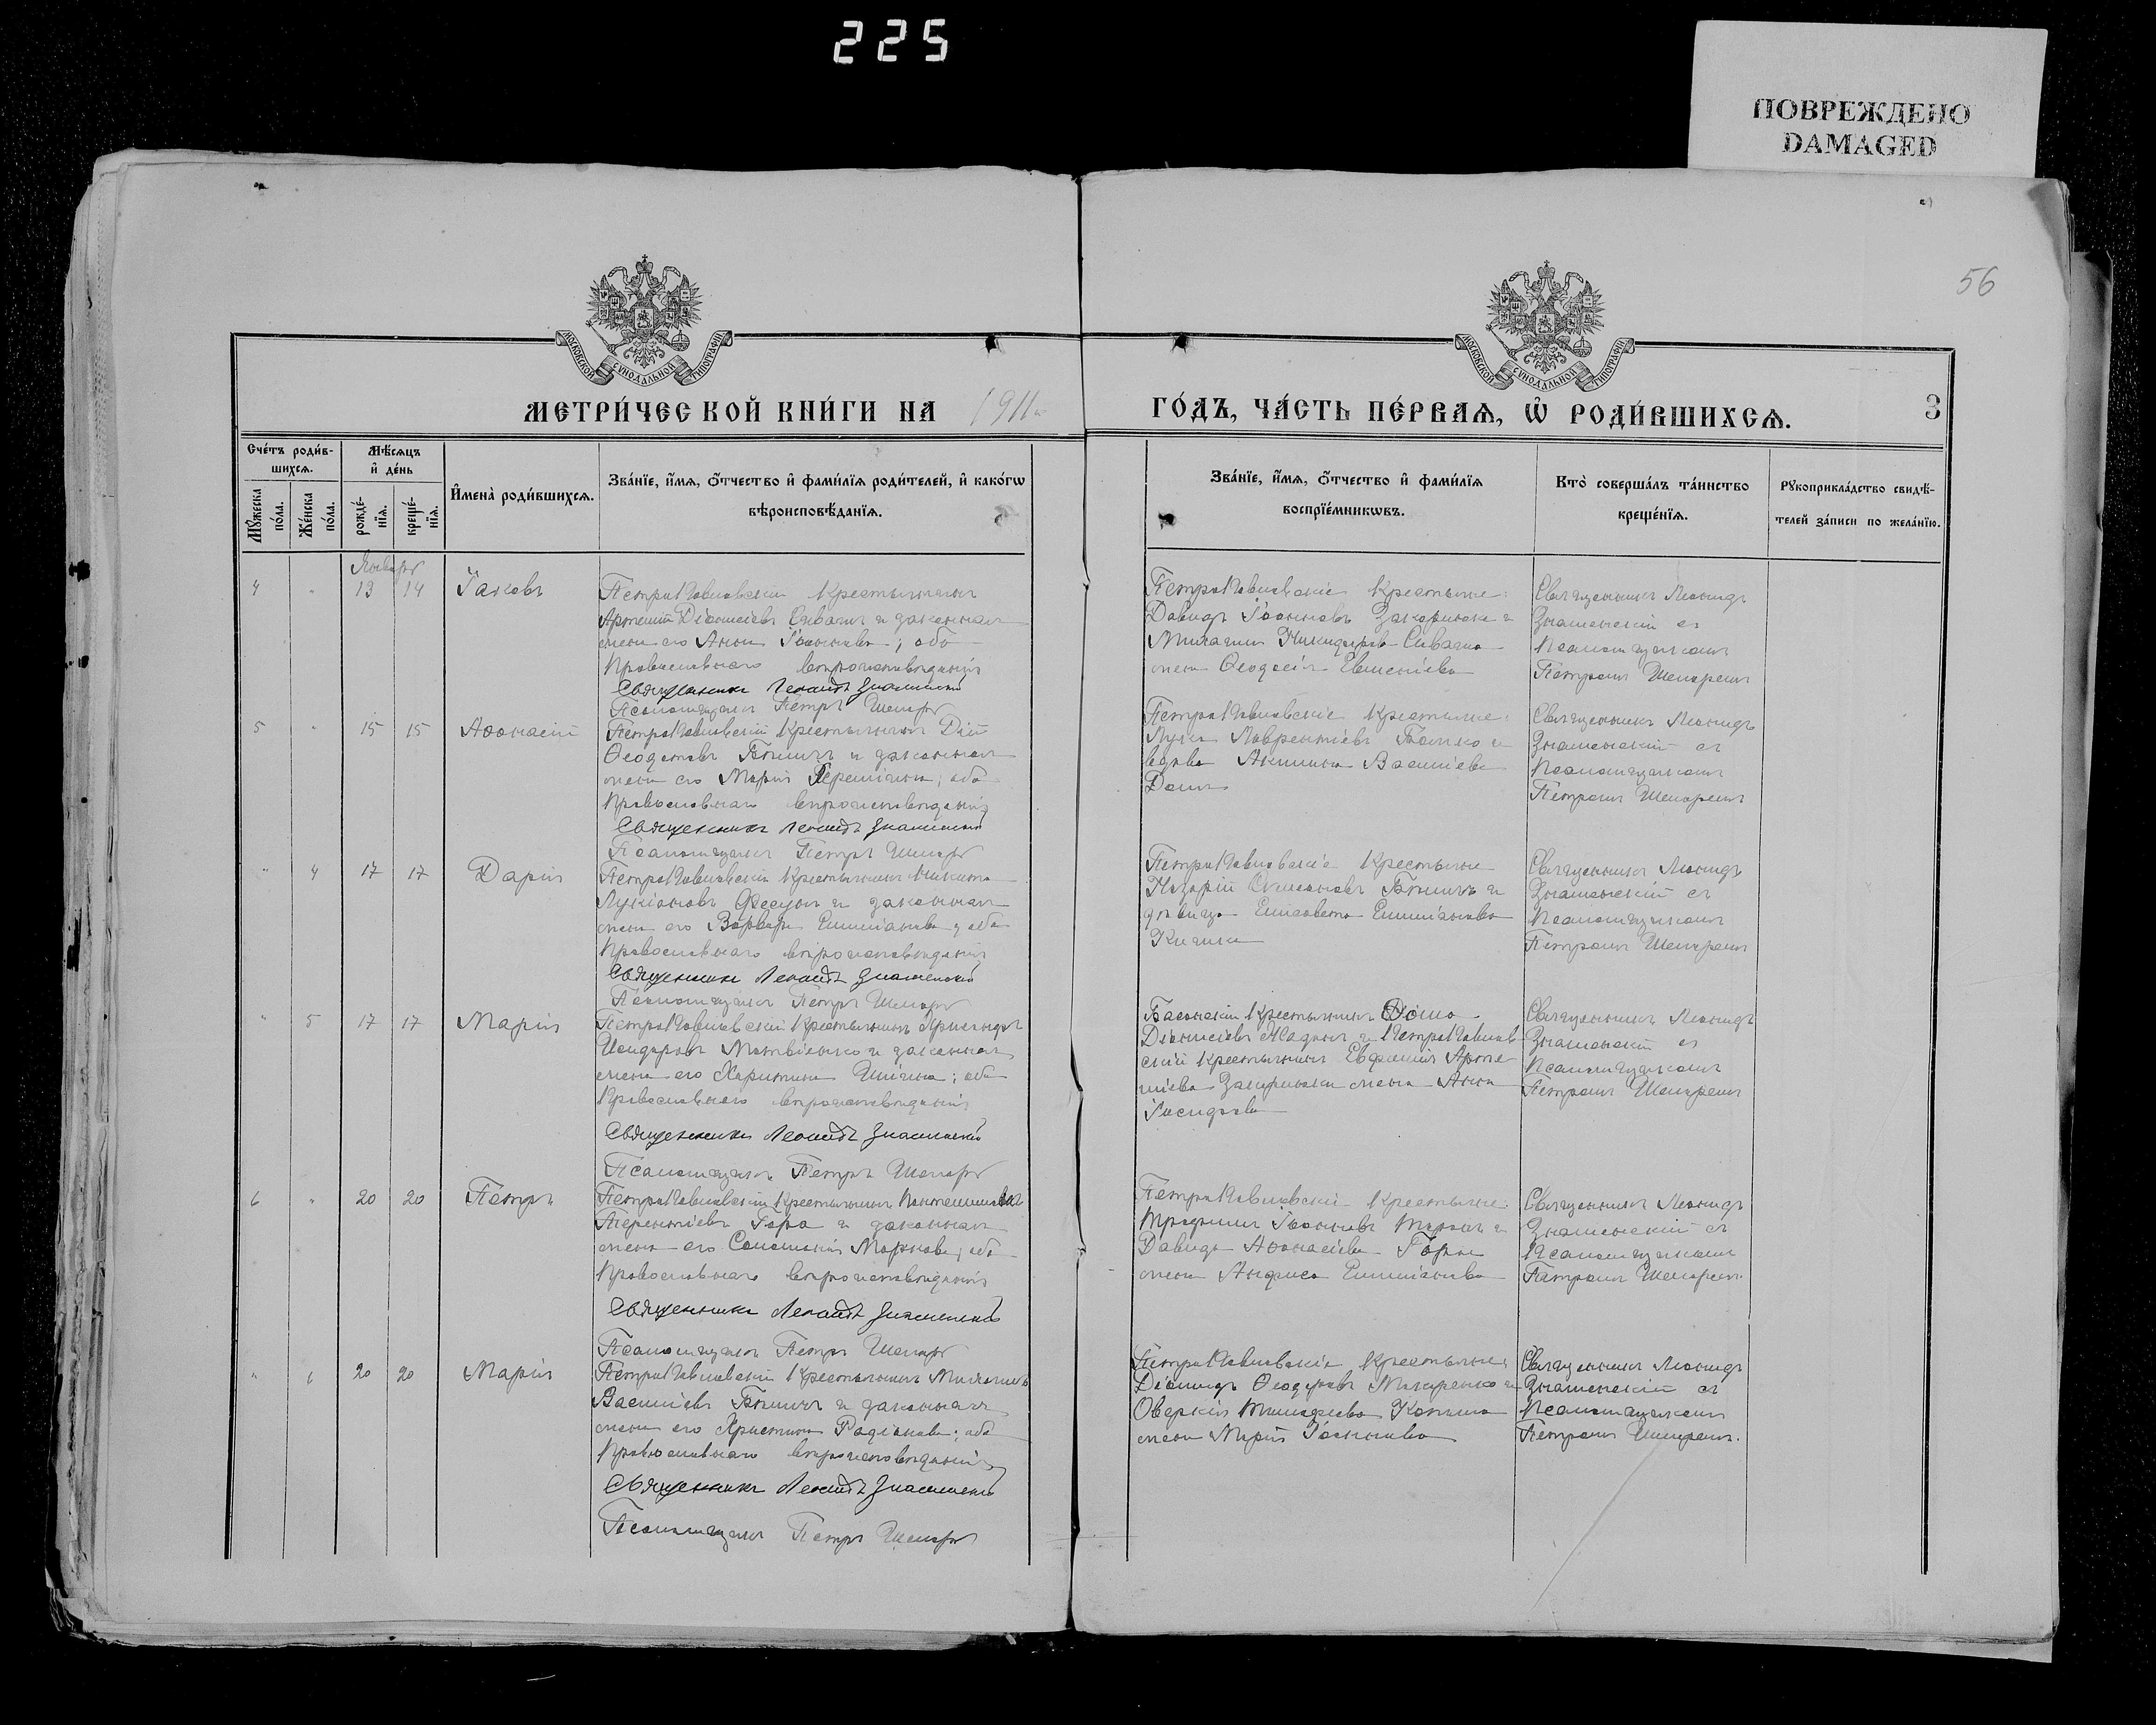 225
ПОВРЕЖДЕНО
DAMAGED
56
МОСКОВСКОЙ СѴНОДАЛЬНОЙ ТИПОГРАФІИ
МОСКОВСКОЙ СѴНОДАЛЬНОЙ ТИПОГРАФІИ
МЕТРИ́ЧЕСКОЙ КНИ́ГИ НА 1911
ГО́ДЪ, ЧА́СТЬ ПЕ́РВАѦ, Ѡ҆ РОДИ́ВШИХСѦ.
3
Сче́тъ роди́в-
шихсѧ.
Мѣ́сѧцъ
и҆ де́нь
Мꙋ́жеска
по́ла.
Же́нска
по́ла.
рожде́-
нїѧ.
креще́-
нїѧ.
И҆мена̀ роди́вшихсѧ.
Зва́нїе, и҆́мѧ, ѻ҆́тчество и҆ фами́лїѧ роди́телей, и҆ како́гѡ
вѣроисповѣ́данїѧ.
Зва́нїе, и҆́мѧ, ѻ҆́тчество и҆ фами́лїѧ
воспрїе́мникѡвъ.
Кто̀ соверша́лъ та́инство
креще́нїѧ.
Рꙋкоприкла́дство свидѣ́-
телей за́писи по жела́нїю.
Январь
4 " 13 14 Іаковъ
ПетроПавловскій Крестьянинъ
Артемій Діонисіевъ Сивашъ и законная
жена его Анна Іоаннова; оба
Православнаго вѣроисповѣданія
Священникъ Леонидъ Знаменскій
Псаломщикъ Петръ
ПетроПавловскіе Крестьяне:
Давидъ Іоанновъ и
Михаила Никифорова Сиваша
жена Ѳеодосія Евменіева
Священникъ Леонидъ
Знаменскій съ
Псаломщикомъ
Петромъ
5 " 15 15 Аѳонасій
ПетроПавловскій Крестьянинъ
и законная
жена его Марія оба
Православнаго вѣроисповѣданія
Священникъ Леонидъ Знаменскій
Псаломщикъ Петръ
ПетроПавловскіе Крестьяне:
Лука Лаврентіевъ и
вдова Акилина Василіева
Священникъ Леонидъ
Знаменскій съ
Псаломщикомъ
Петромъ
" 4 17 17 Дарія
ПетроПавловскій Крестьянинъ Никита
Лукіановъ Фесунъ и законная
жена его Варвара Емиліанова; оба
Православнаго вѣроисповѣданія
Священникъ Леонидъ Знаменскій
Псаломщикъ Петръ
ПетроПавловскіе Крестьяне
Назарій и
дѣвица Елисавета Емиліанова
Священникъ Леонидъ
Знаменскій съ
Псаломщикомъ
Петромъ
" 5 17 17 Марія
ПетроПавловскій Крестьянинъ
и законная
жена его Харитина оба
Православнаго вѣроисповѣданія
Священникъ Леонидъ Знаменскій
Псаломщикъ Петръ
Крестьянинъ Ѳома
Діонисіевъ и ПетроПавлов
скій крестьянина Арте
міева жена Анна
Священникъ Леонидъ
Знаменскій съ
Псаломщикомъ
Петромъ
6 " 20 20 Петръ
ПетроПавловскій Крестьянинъ Пантелеимонъ
Терентіевъ Гора и законная
жена его Соломонія Маркова; оба
Православнаго вѣроисповѣданія
Священникъ Леонидъ Знаменскій
Псаломщикъ Петръ
ПетроПавловскіе Крестьяне:
Трофимъ Іоанновъ и
Давида Аѳонасіева Горы
жена Анфиса Емиліанова
Священникъ Леонидъ
Знаменскій съ
Псаломщикомъ
Петромъ
" 6 20 20 Марія
ПетроПавловскій Крестьянинъ Михаилъ
Василіевъ и законная
жена его Христина Радіонова; оба
Православнаго вѣроисповѣданія
Священникъ Леонидъ Знаменскій
Псаломщикъ Петръ
ПетроПавловскіе Крестьяне:
Ѳеодоровъ Макаренко и
Оверкія Тимофеева
жена Марія Іоаннова
Священникъ Леонидъ
Знаменскій съ
Псаломщикомъ
Петромъ